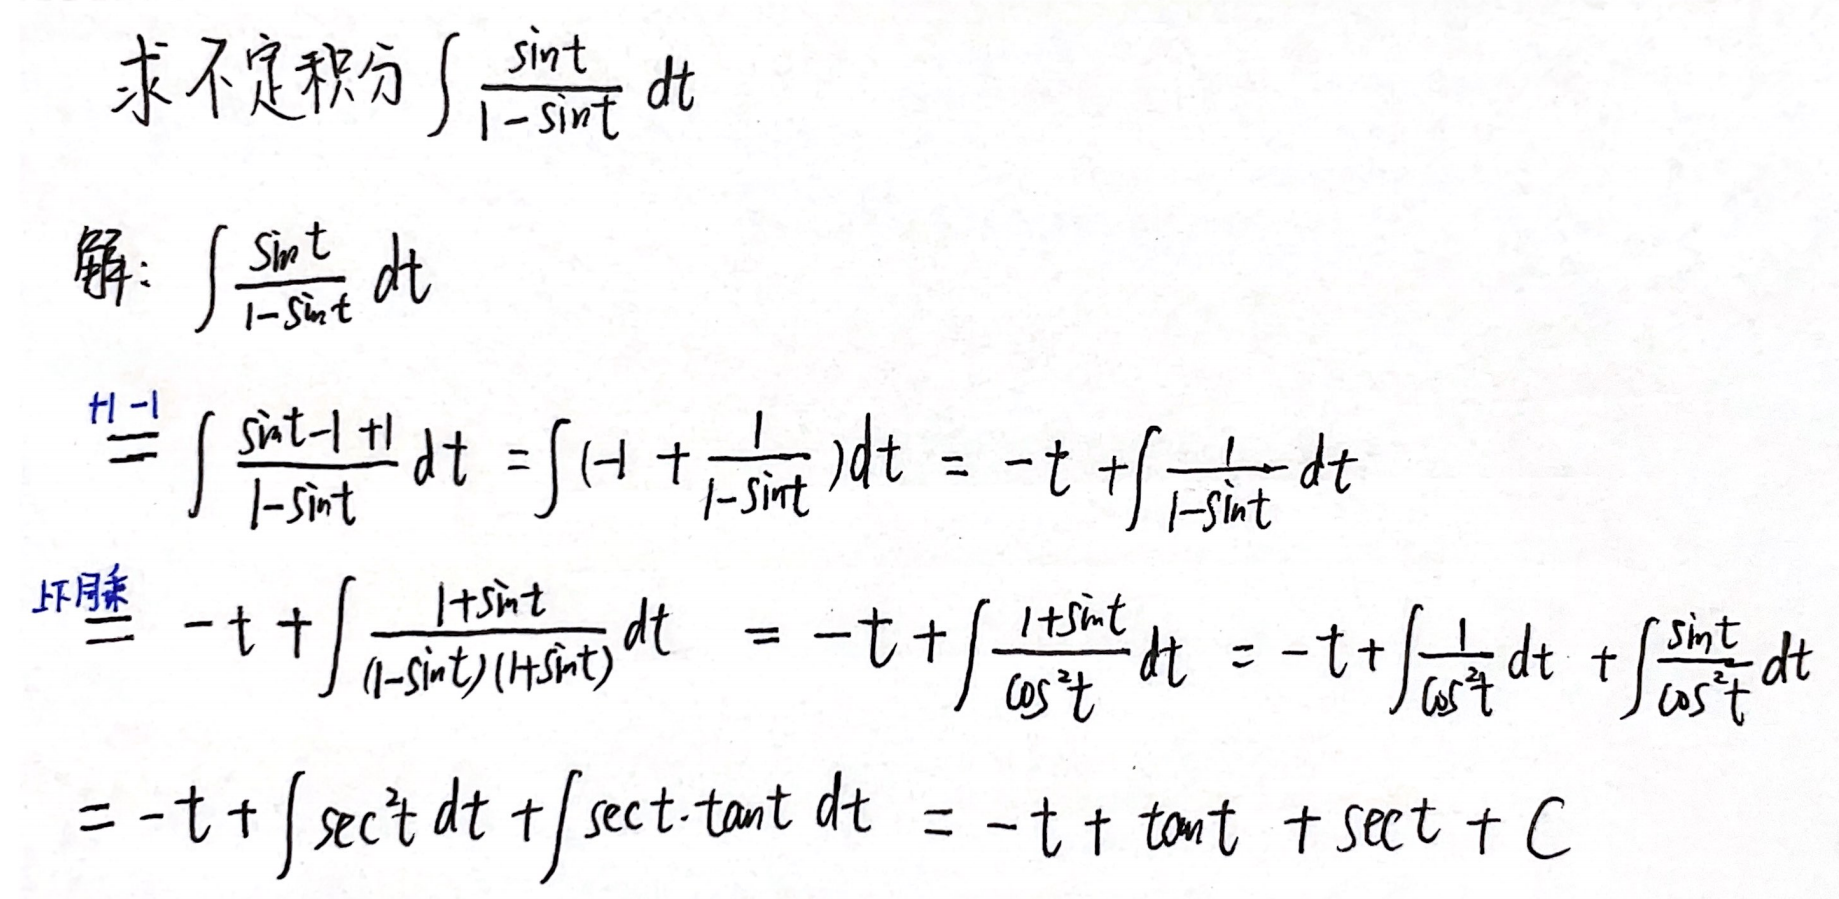 求不定积分 ∫ sint/(1-sint) dt
解: ∫ sint/(1-sint) dt
+1 -1
= ∫ (sint-1+1)/(1-sint) dt = ∫(-1 + 1/(1-sint))dt = -t + ∫ 1/(1-sint) dt
上下同乘
= -t + ∫ (1+sint)/((1-sint)(1+sint)) dt = -t + ∫ (1+sint)/cos²t dt = -t + ∫ 1/cos²t dt + ∫ sint/cos²t dt
= -t + ∫ sec²t dt + ∫ sect·tant dt = -t + tant + sect + C